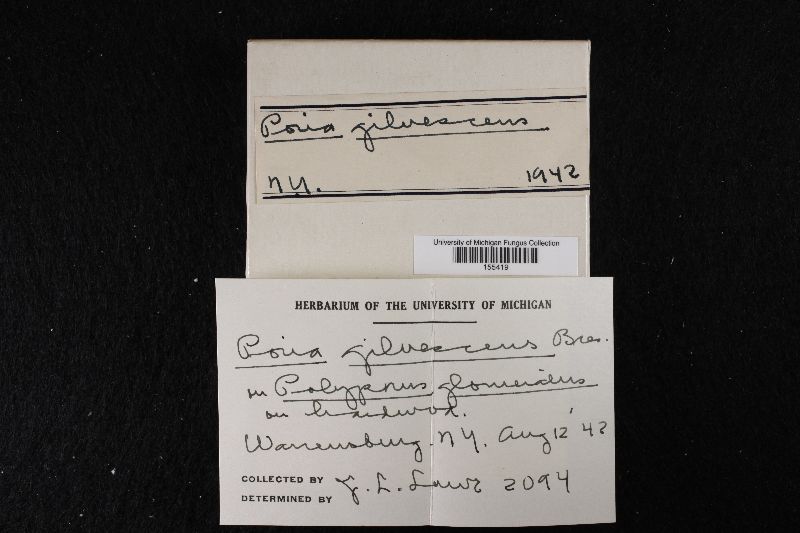 Poria gilvescens
N.Y. 1942
University of Michigan Fungus Collection
155419
HERBARIUM OF THE UNIVERSITY OF MICHIGAN
Poria gilvescens Bres.
on Polyporus glomeratus
on hardwood.
Warrensburg. N.Y. Aug 12 '42
COLLECTED BY J. L. Lowe 2094
DETERMINED BY